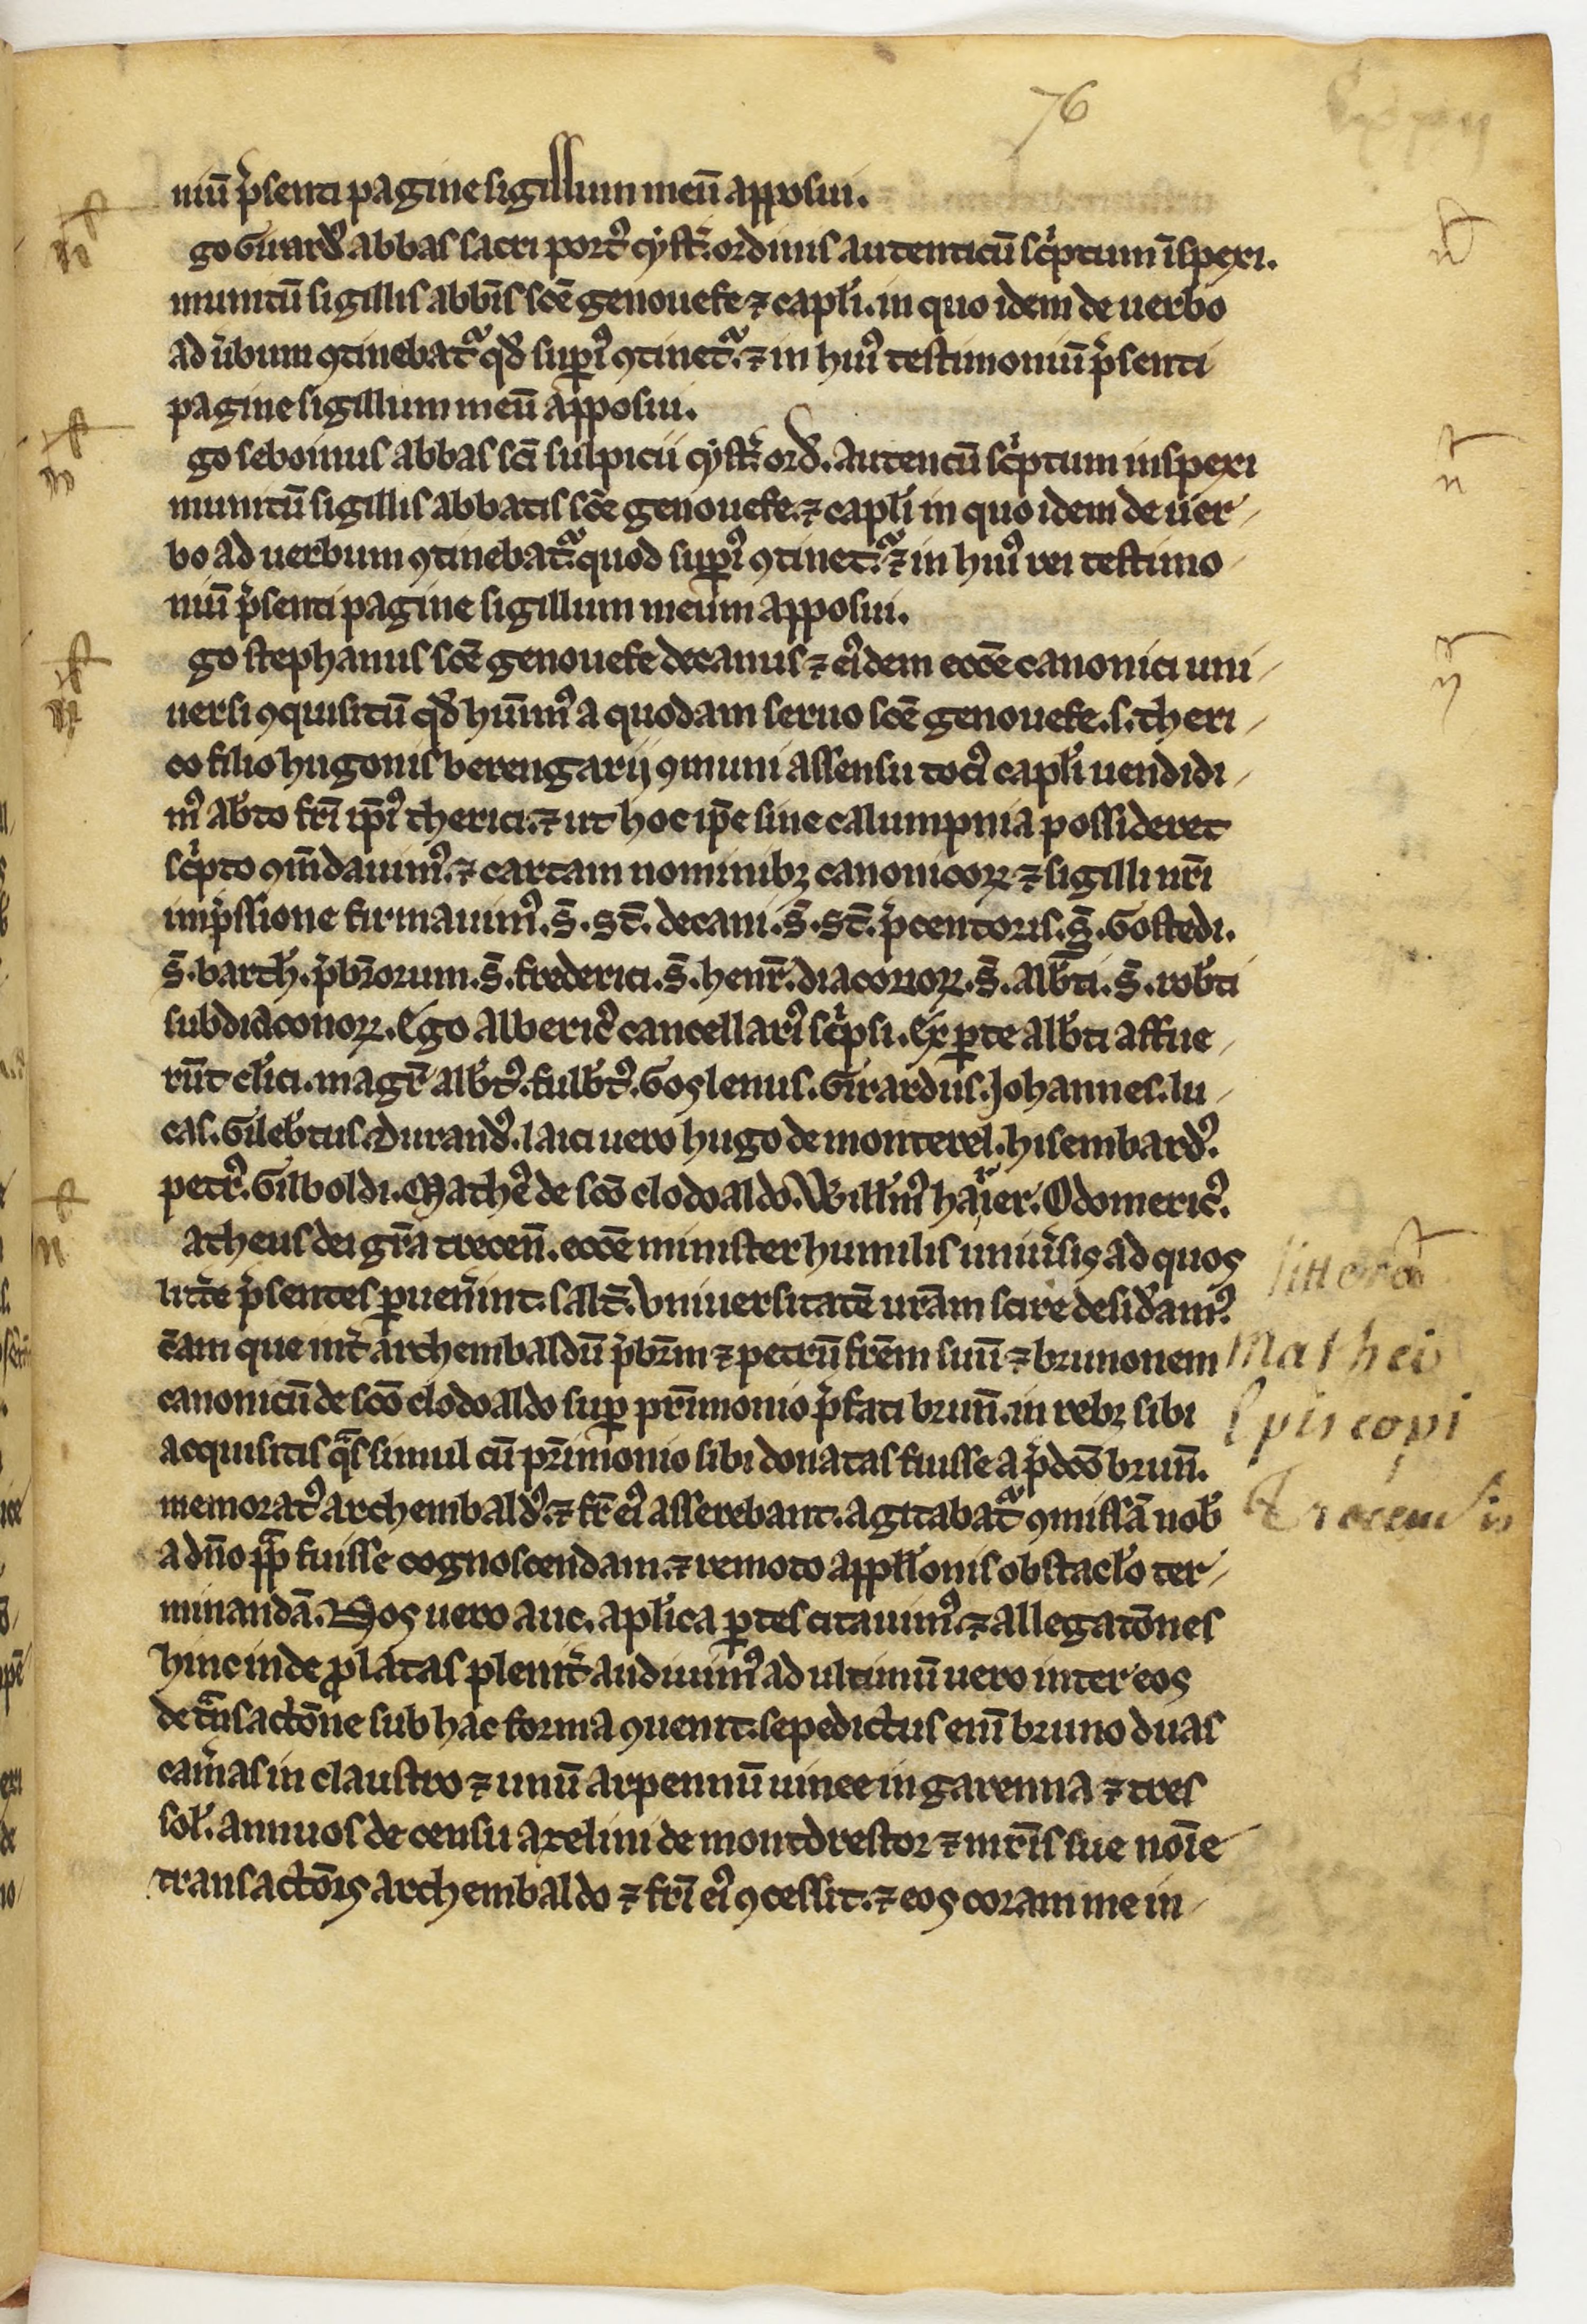 76
niū p̄senti pagine sigillum meū apposui.
go Girardꝰ abbas sacri portꝰ cyst̄. ordinis autenticū sc͛ptum īspexi.
munitū sigillis abbīs sc̄e genouefe ⁊ capl̄i. in quo idem de uerbo
ad ūbum ꝯtinebatᷓ qd̄ superiꝰ ꝯtinetᷓ. ⁊ in huiꝰ testimoniū p̄senti
pagine sigillum meū apposui.
go seboinus abbas sc̄i sulpicii cyst̄. ord̄. Autencū sc͛ptum inspexi
munitū sigillis abbatis sc̄e genouefe. ⁊ capl̄i in quo idem de uer
bo ad uerbum ꝯtinebatᷓ. quod superiꝰ ꝯtinetᷓ. ⁊ in huiꝰ rei testimo
niū p̄senti pagine sigillum meum apposui.
go stephanus sc̄e genouefe decanus ⁊ eiꝰdem ecc̄e canonici uni
uersi ꝯquisitū qd̄ hūimꝰ a quodam seruo sc̄e genouefe. s. theri
co filio hugonis berengarij ꝯmuni assensu tociꝰ capl̄i uendidi
mꝰ alb̄to fr̄i ip̄iꝰ therici. ⁊ ut hoc ip̄e sine calumpnia possideret
sc͛pto ꝯm̄dauimꝰ. ⁊ cartam nominibꝫ canonicoꝝ ⁊ sigilli nr̄i
imp̄ssione firmauimꝰ. S̄. St̄. decani. S̄. St̄. p̄centoris. S̄. Gostedi.
S̄. barth̄. p̄br̄orum. S̄. frederici. S̄. henr̄. diaconoꝝ. S̄. Alb̄ti. S̄. rob̄ti
subdiaconoꝝ. Ego albericꝰ cancellariꝰ sc͛psi. Ex ꝑte alb̄ti affue
rūt cl̄ici. magr̄ alb̄tꝰ. fulb̄tꝰ. Goslenus. Girardus. Johannes. lu
cas. Gileb̄tus. Durandꝰ. laici uero hugo de monterel. hisembardꝰ.
petrꝰ. Gilboldi. Matheꝰ de sc̄o clodoaldo. Will̄mꝰ Odomericꝰ.
atheus dei gr̄a trecen̄. ecc̄e minister humilis uniuūsis ad quos
litt̄e p̄sentes ꝑuen̄int. salt̄. Vniuersitatē ur̄am scire desid̄amꝰ.
c̄am que int̄ archembaldū p̄br̄m ⁊ petrū fr̄em suū ⁊ brunonem
canonicū de sc̄o clodoaldo super pr̄imonio p̄fati brun̄. in rebꝫ sibi
acquisitis qᷓs simul cū pr̄imonio sibi donatas fuisse a p̄dc̄o brun̄.
memoratꝰ archembaldꝰ. ⁊ fr̄ eiꝰ asserebant. agitabatᷓ ꝯmissā nob̄
a dn̄o pp̄ fuisse cognoscendam. ⁊ remoto appll̄onis obstacl̄o ter
minandā. Nos uero auc. apl̄ica ꝑtes citauimꝰ. ⁊ allegatōnes
hinc inde ꝓlatas plenit̄ audiuimꝰ ad ultimū uero inter eos
de tᷓnsactōne sub hac forma ꝯuenit. sepedictus enī bruno duas
cam̄as in claustro ⁊ unū arpennū uinee in garenna ⁊ tres
sol̄. annuos de censu axelini de montdrestor ⁊ mr̄is sue noīe
transactōis archembaldo ⁊ fr̄i eiꝰ ꝯcessit. ⁊ eos coram me in
littera
Mathei
Episcopi
Trecensis